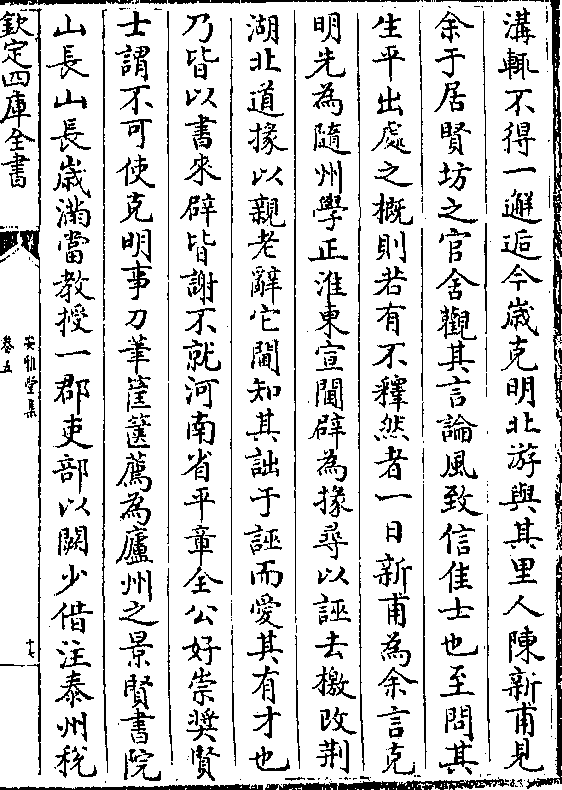 溝輒不得一邂逅今歲克明北游與其里人陳新甫見
余于居賢坊之官舍觀其言論風致信佳士也至問其
生平出處之概則若有不釋然者一日新甫為余言克
明先為隨州學正淮東宣閫辟為掾尋以誣去檄改荆
湖北道掾以親老辭它閫知其詘于誣而愛其有才也
乃皆以書來辟皆謝不就河南省平章全公好崇奬賢
士謂不可使克明事刀筆筐篋薦為廬州之景賢書院
山長山長歲滿當教授一郡吏部以闕少借注泰州稅
欽定四庫全書
安雅堂集
卷五
十七